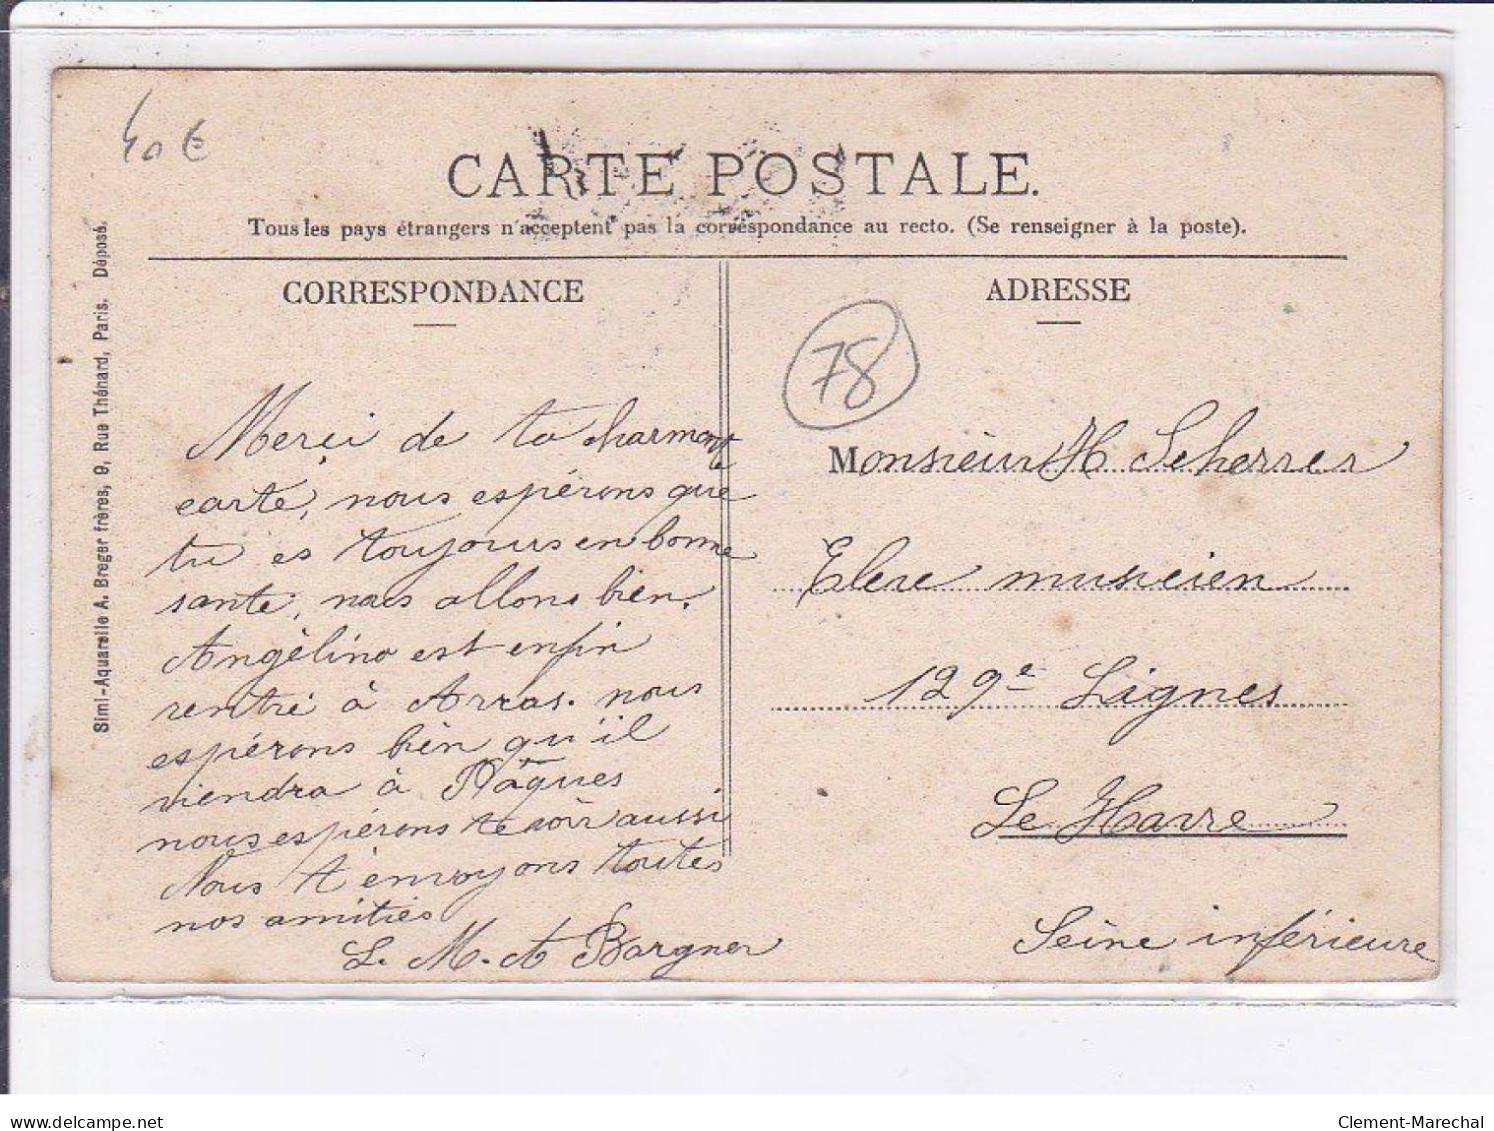 40 €
CARTE POSTALE.
Tous les pays étrangers n'acceptent pas la correspondance au recto. (Se renseigner à la poste).
Simi-Aquarelle A. Breger frères, 9, Rue Thénard, Paris. Déposé.
CORRESPONDANCE
Merçi de ta charmante
carte, nous espérons que
tu es toujours en bonne
sante, nous allons bien.
Angèlino est enfin
rentré à Arras. nous
espérons bien qu'il
viendra à Pâques
nous espérons te voir aussi
Nous t'envoyons toutes
nos amitiés
L. M. A Bargner
ADRESSE
78
Monsieur H Scherrer
Eleve musicien
129e Lignes
Le Havre
Seine inférieure
delcampe.net
Clement-Marechal